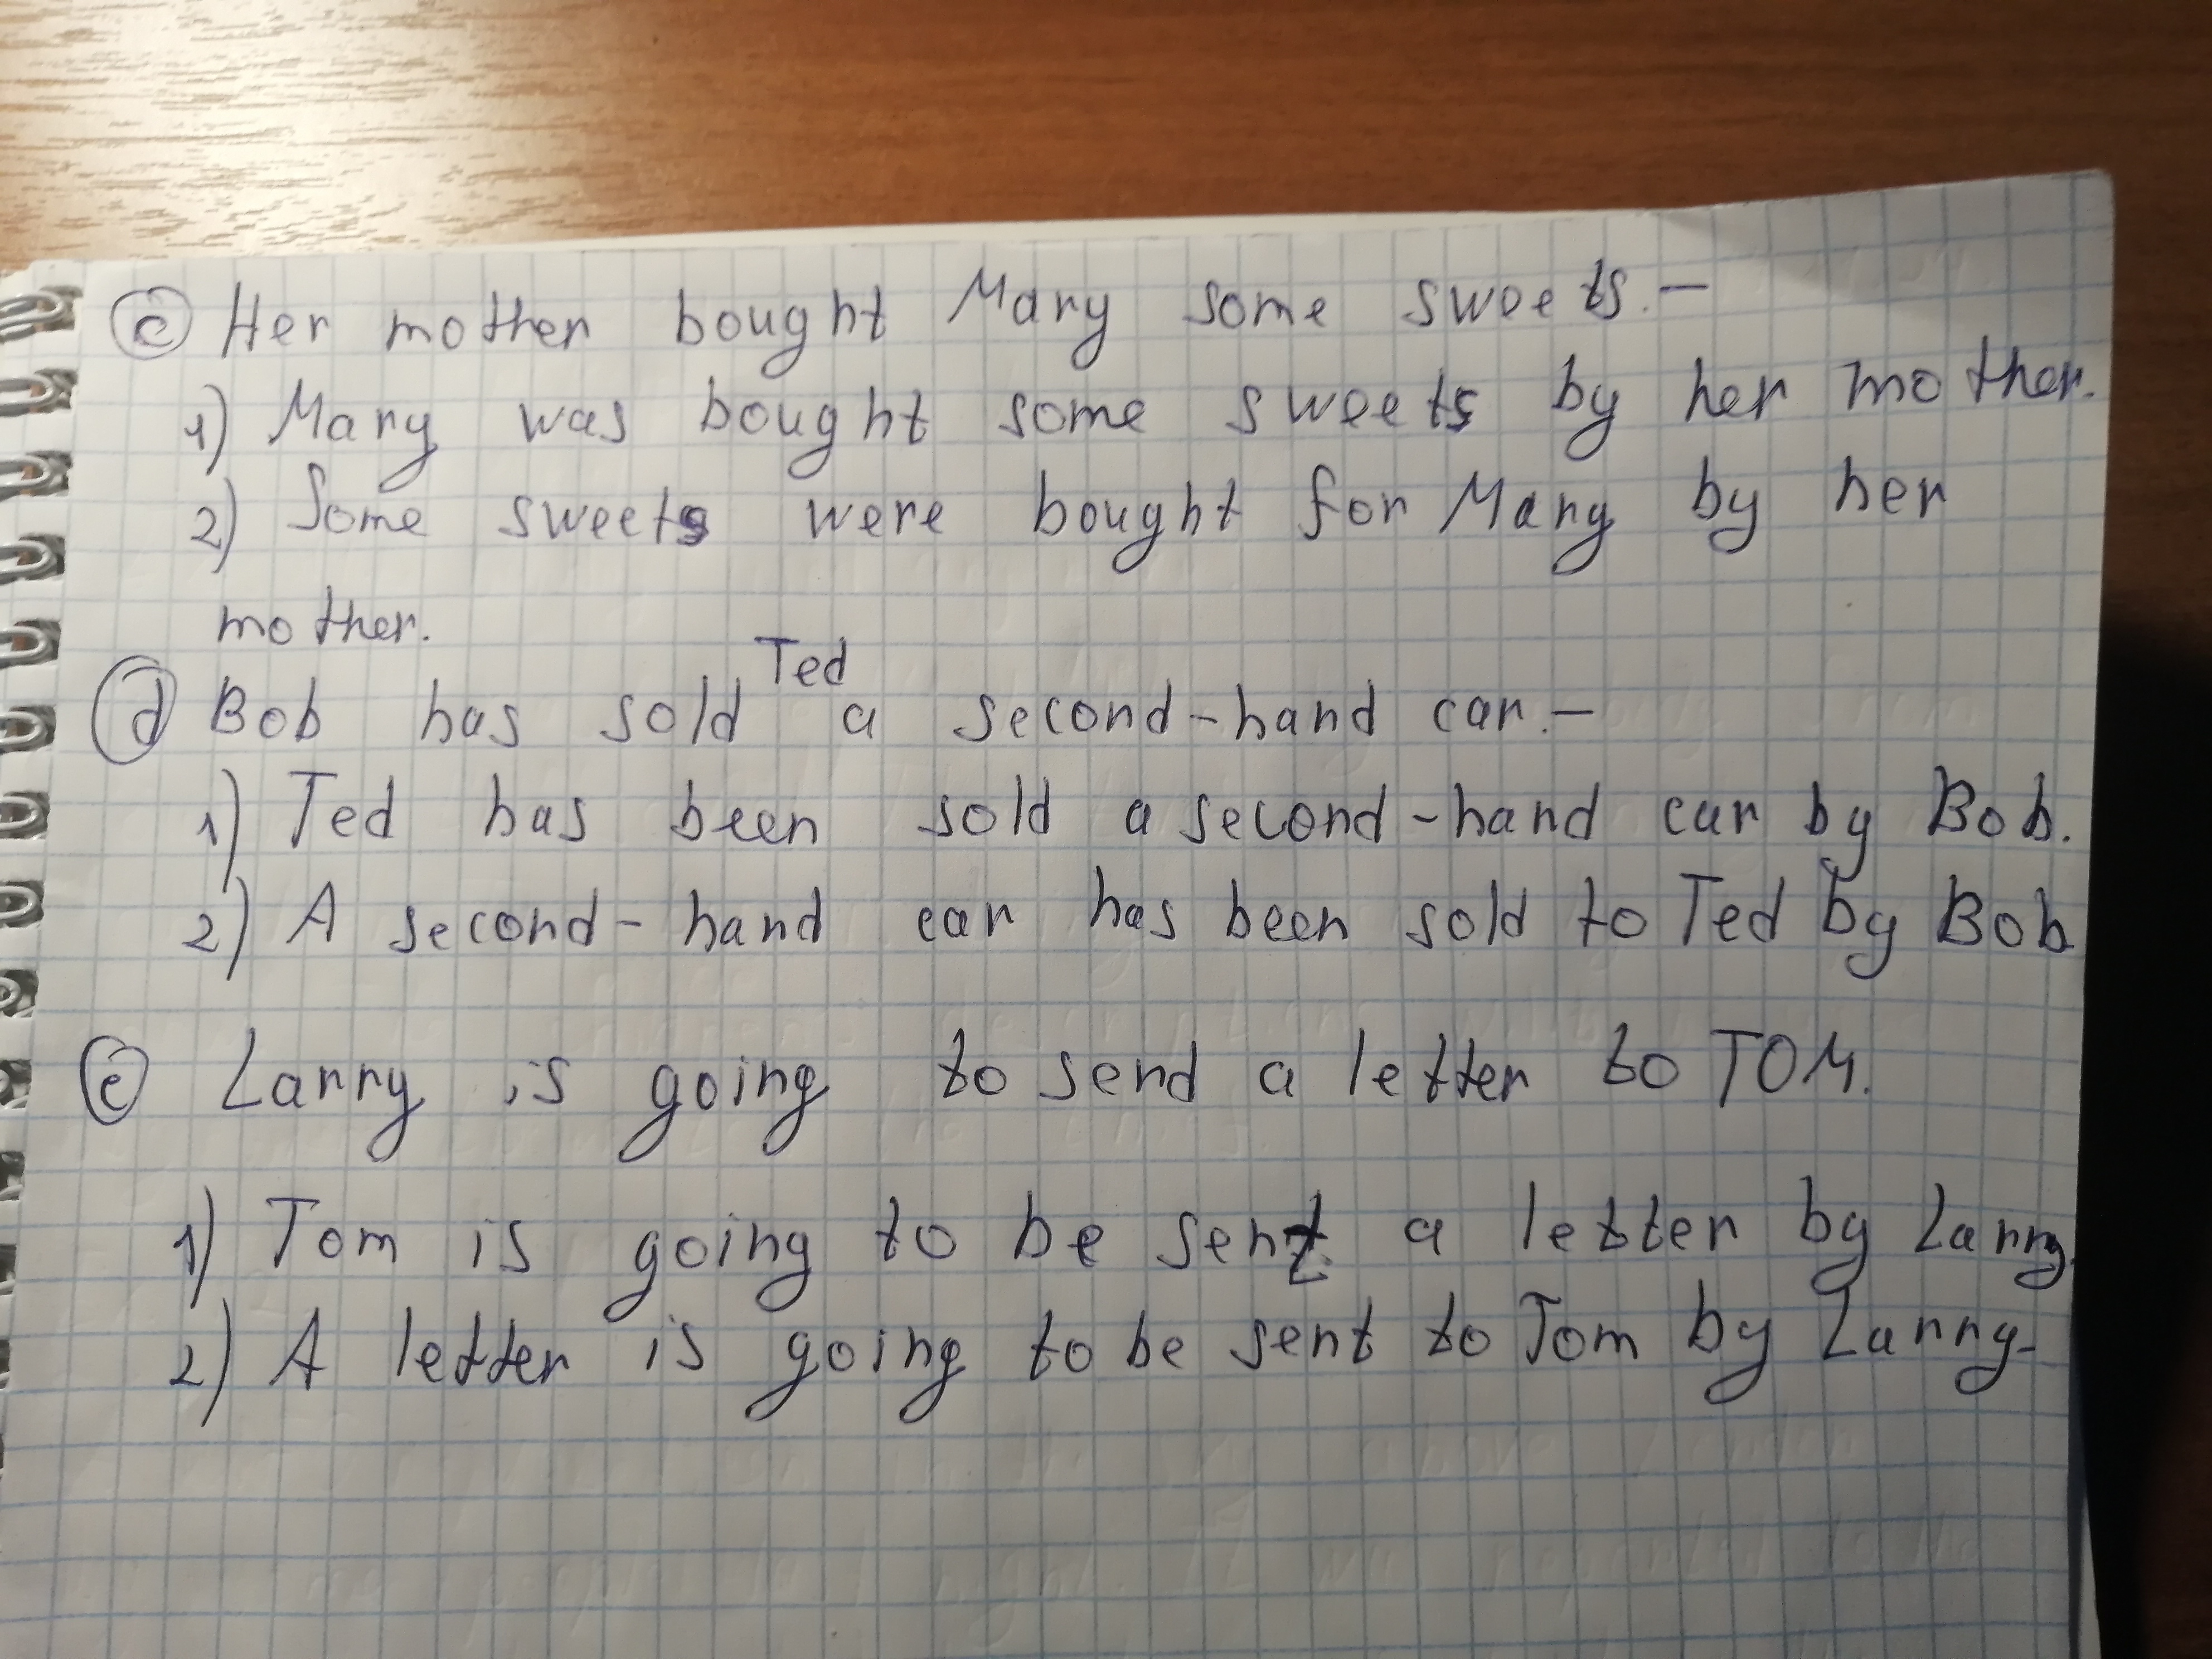 c Her mother bought Mary some sweets. –
1) Mary was bought some sweets by her mother.
2) Some sweets were bought for Mary by her
mother.
Ted
d Bob has sold a second-hand car. –
1) Ted has been sold a second-hand car by Bob.
2) A second-hand car has been sold to Ted by Bob
e Larry is going to send a letter to TOM.
1) Tom is going to be sent a letter by Larry.
2) A letter is going to be sent to Tom by Larry.